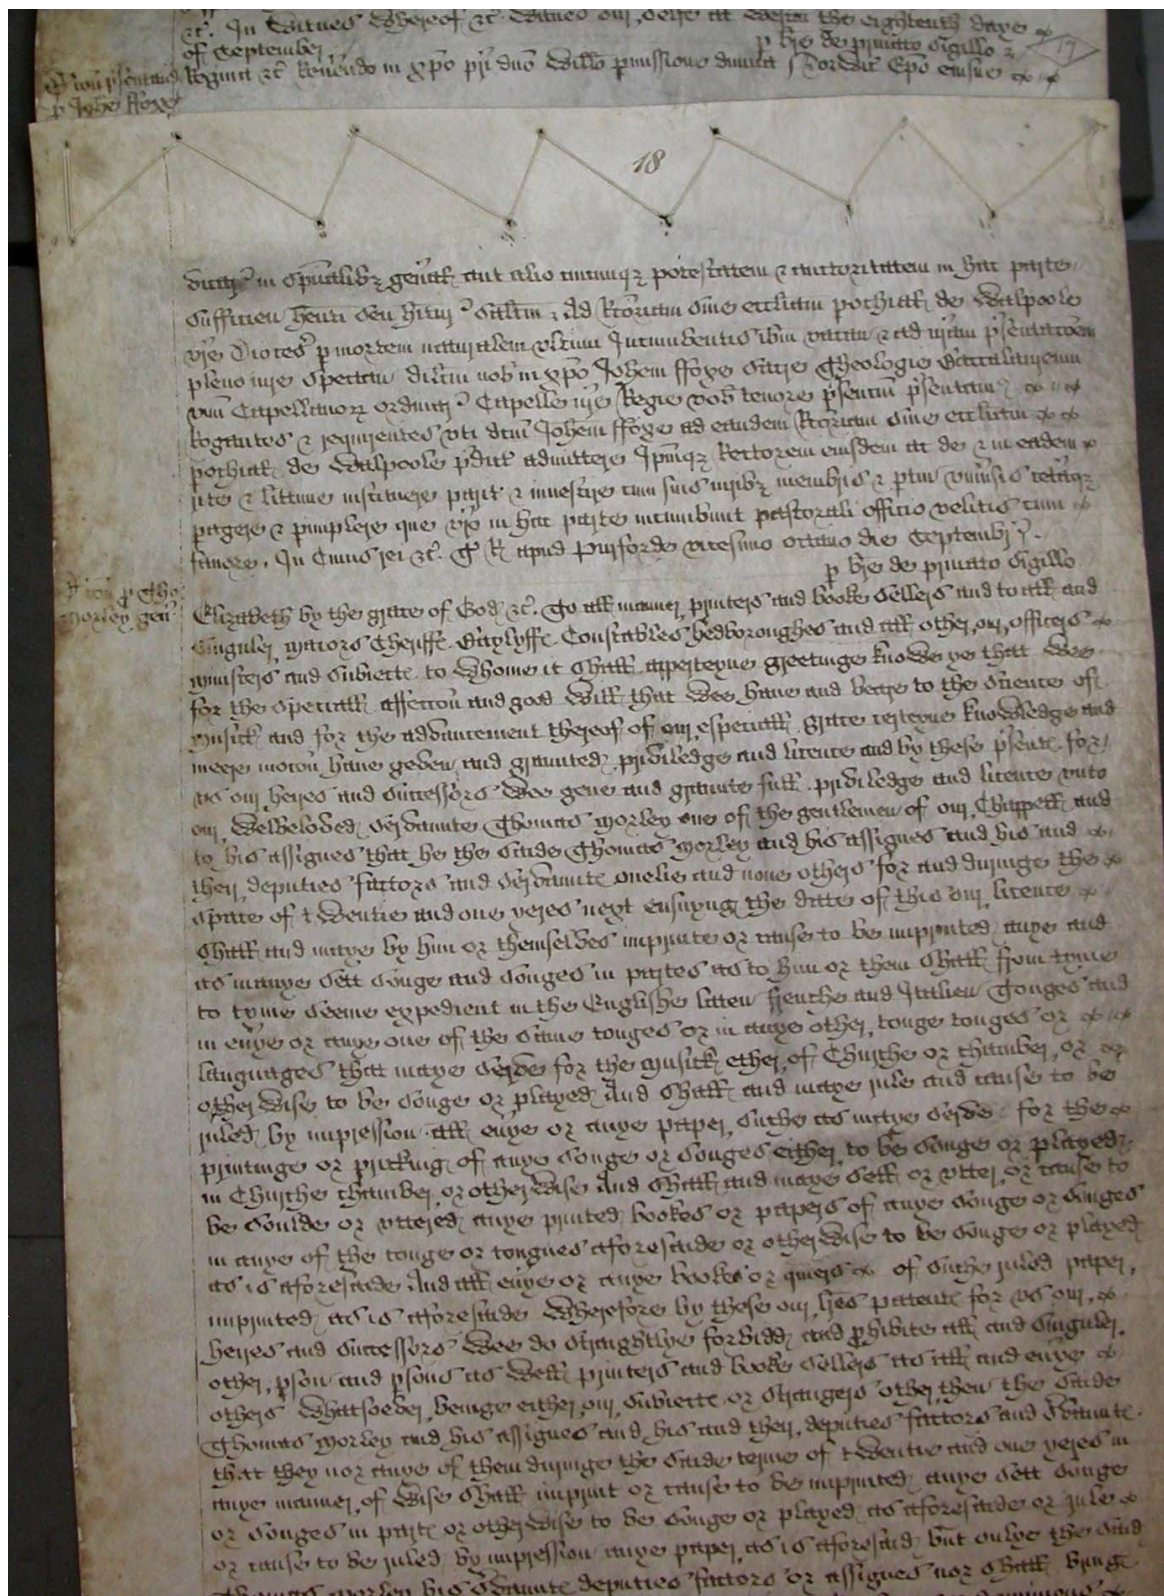 &c. In Witnes Whereof &c. Witnes our selfe at Westm the eighteenth daye
of September.
p bre de privato sigillo &c
17
Regina &c Reverendo in xpo pri dno Willo permissione divina Norwic Epo eiusve
p Johe ffoxe
18
vicar in spualibz genali aut alio cuicumqz potestatem & auctoritatem in hac parte
sufficien henti seu hitur saltm Ad Rcoriam sive eccliam pochialem de Walpoole
vre Dioces p mortem naturalem ultimi Incumbentis ibm vacan & ad nram psentacoem
pleno iure spectan dilcm nob in xpo Johem ffoxe sacre Theologie Baccalaureum
unu Capellanorz ordinar Capelle nre Regie vob tenore psentiu psentam
Rogantes & requirentes uti dcm Johem ffoxe ad eandem Rcoriam sive eccliam
pochialem de Walpoole pdict admittere Ipmqz Rectorem eiusdem ac de & in eadem
rite & litime instituere
pagere & pimplere que vro in hac parte incumbunt pastorali officio velitis cum
favore. In Cuius rei &c. T R apud Purforde vicesimo octavo die Septembr.
p bre de privato sigillo
p Tho:
Morley gen
Elizabeth by the grace of God &c. To all manner printers and booke sellers and to all and
singuler maiors Sheriffe Baylyffe Constables hedboroughes and all other our officers
ministers and subiecte to Whome it shall apperteyne greetinge knowe ye that Wee
for the speciall affeccon and good Will that Wee have and beare to the science of
musick and for the advancement thereof of our especiall grace certeyne knowledge and
meere mocon have geven and graunted priviledge and licence and by these psente for
us our heyres and successors Wee geve and graunte full priviledge and licence unto
our Welbeloved servaunte Thomas Morley one of the gentlemen of our Chappell and
to his assignes that he the saide Thomas Morley and his assignes and his and
their deputies factors and servaunte onelie and none others for and duringe the
space of twentie and one yeres next ensuyng the date of this our licence
shall and maye by him or themselves imprinte or cause to be imprinted anye and
as manye sett songe and songes in partes as to him or them shall from tyme
to tyme seeme expedient in the Englishe laten frenche and Italien Tonges and
in evye or anye one of the same tonges or in anye other tonge tonges or
languages that maye serve for the musick ether of Churche or chamber or
otherwise to be songe or played And shall and maye rule and cause to be
ruled by impression all evye or anye paper suche as maye serve for the
printinge or pricking of anye songe or songes either to be songe or played
in Churche chamber or otherwise And shall and maye sell or utter or cause to
be soulde or uttered anye printed bookes or papers of anye songe or songes
in anye of the tonge or tongues aforesaide or otherwise to be songe or played
as is aforesaide And all evye or anye bookes or quiers of suche ruled paper
imprinted as is aforesaide Wherefore by these our lres patente for us our
heyres and successors Wee do straughtlye forbidd and phibite all and singuler
other pson and psons as Well printers and booke sellers as all and evye
others Whatsoever beinge either our subiecte or strangers other then the saide
Thomas Morley and his assignes and his and their deputies factors and svaunte
that they nor anye of them duringe the saide terme of twentie and one yeres in
anye manner of Wise shall imprint or cause to be imprinted anye sett songe
or songes in parte or otherwise to be songe or played as aforesaide or rule
or cause to be ruled by impression anye paper as is aforesaid but onlye the said
Thomas Morley his svaunte deputies factors or assignes nor shall bring